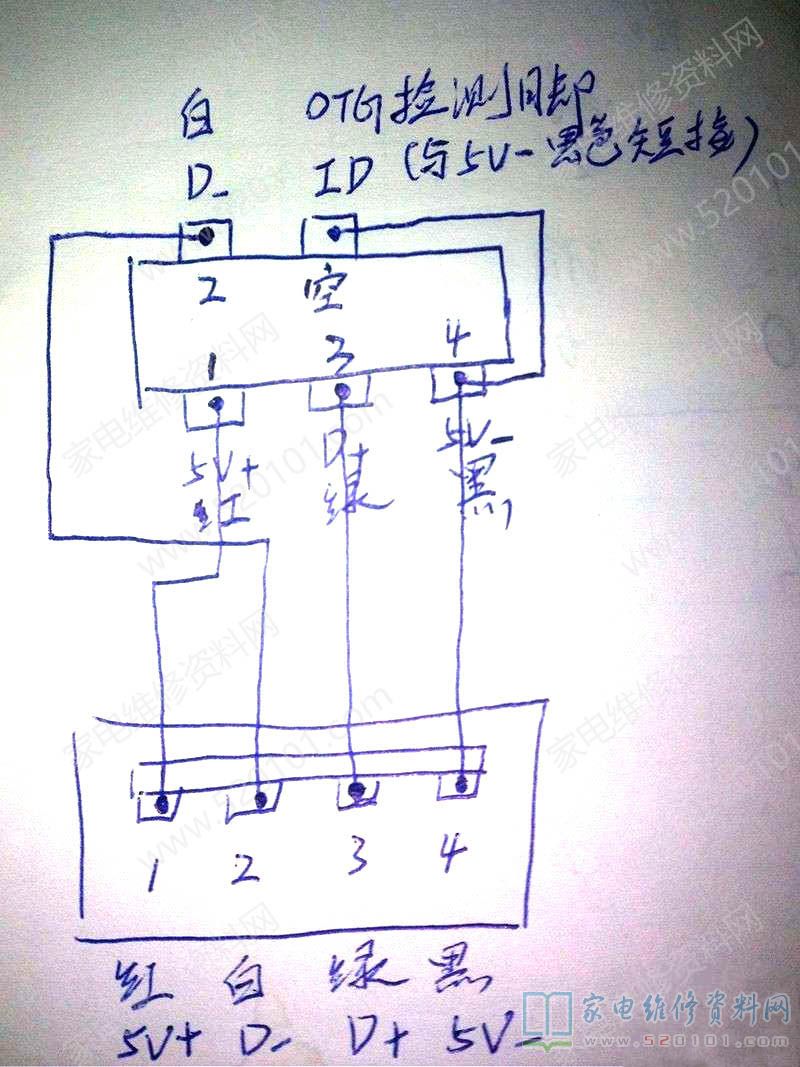 白 OTG检测脚
D- ID (与5V-黑色短接)
2 空
1 3 4
5V+ D+ 5V-
红 绿 黑
1 2 3 4
红 白 绿 黑
5V+ D- D+ 5V-
家电维修资料网
www.520101.com